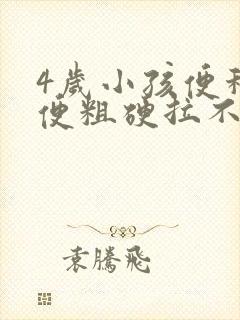 4歲小孩便秘
便粗硬拉不
袁騰飛